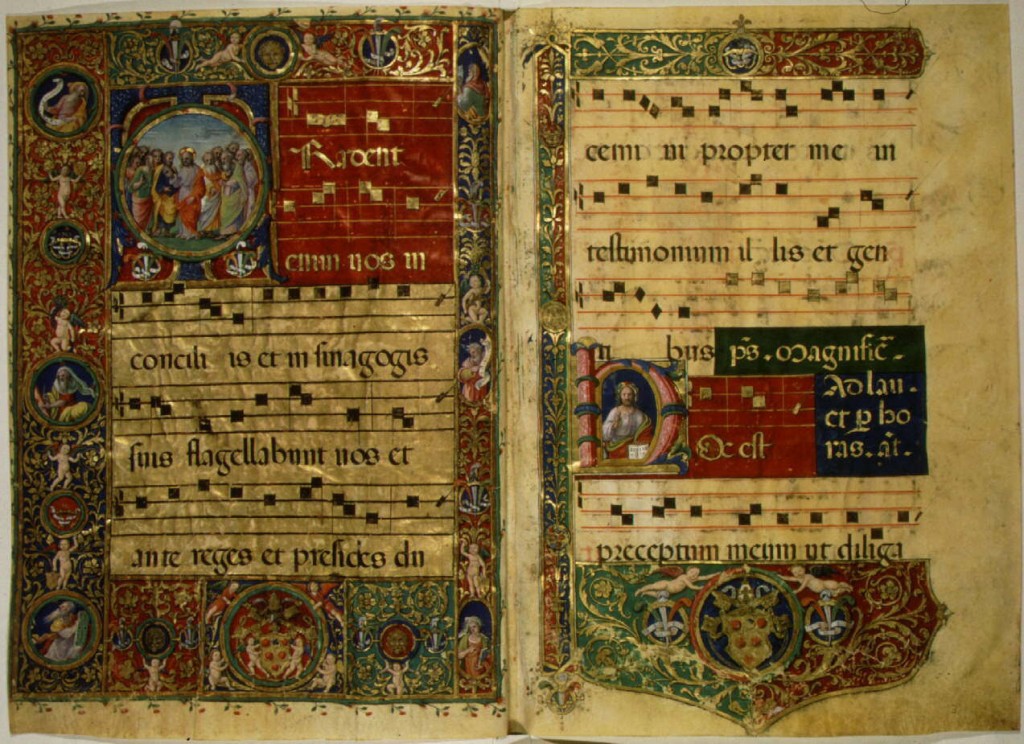 Tradent
enim vos in
concili is et in sinagogis
suis flagellabunt vos et
ante reges et presides du
cemi ni propter me in
testimonium il lis et gen
ti bus ps. Magnific̄.
Ad lau.
et p̱ ho
ras. añt.
Hoc est
preceptum meum ut diliga